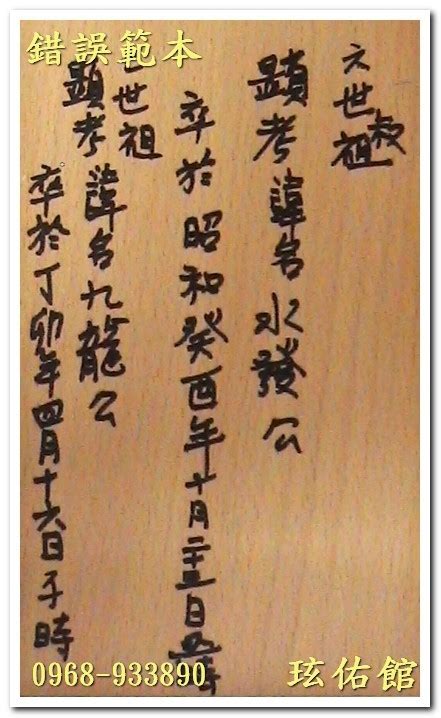 錯誤範本
六世叔祖
顯考諱名水發公
卒於昭和癸酉年十月二十五日時
七世祖
顯考諱名九龍公
卒於丁卯年四月十六日子時
0968-933890
玹佑館